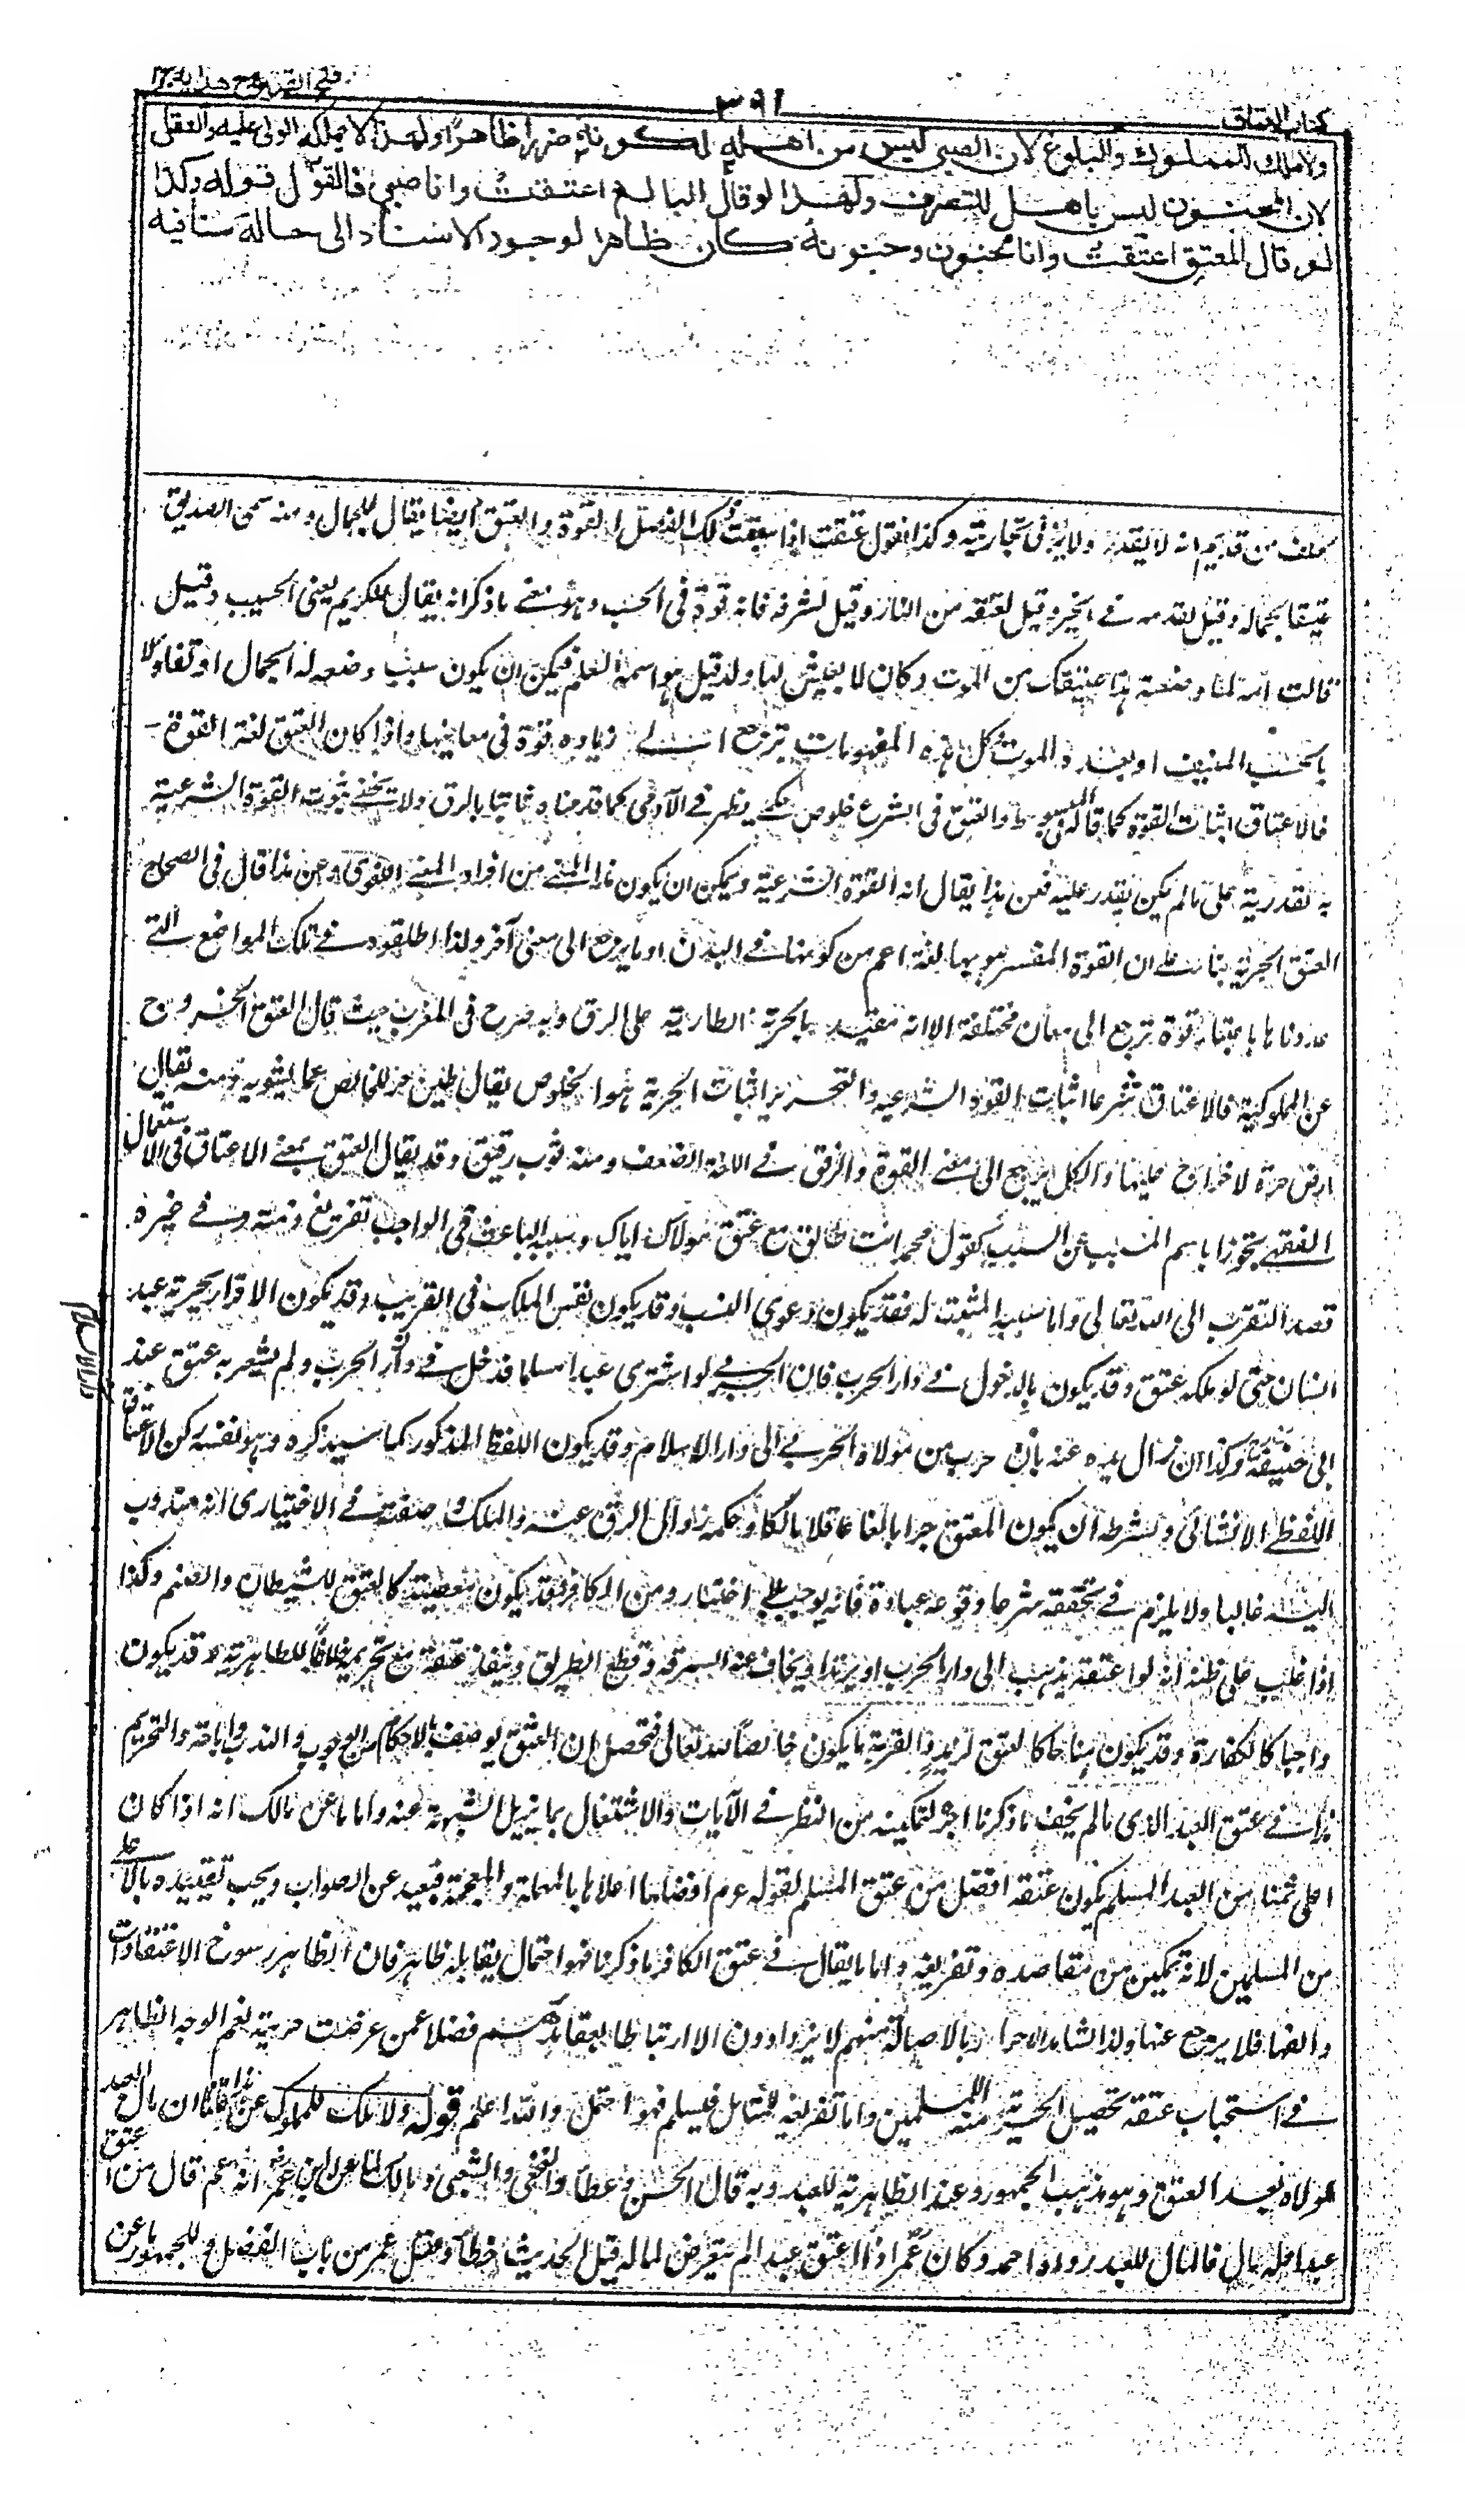 كتاب الاعتاق
٣٩١
فتح القدير مع هدايه ج٢
ولا ملك المملوك والبلوغ لان الصبي ليس من اهله لكونه ضررا ظاهرا ولهذا لا يملكه الولي عليه والعقل
لان المجنون ليس باهل للتصرف ولهذا لو قال البالغ اعتقت وانا صبي فالقول قوله وكذا
لو قال المعتق اعتقت وانا مجنون وجنونه كان ظاهرا لوجود الاسناد الى حالة منافيه
من قديم انه لا يقدر ولا في تجاريته وكذا نقول عتقت اذا سبقت وكذا الفصل القوة والعتق ايضا يقال للجمال ومنه سمى الصديق
عتيقا لجماله وقيل لقدمه في الخير وقيل لعتقه من النار وقيل لشرفه فانه قوة في الحسب وهو معنى ما ذكر انه يقال للكريم يعنى الحسيب وقيل
قالت امه لما وضعته هذا عتيقك من الموت وكان لا يعيش لها ولد وقيل هو اسمه العلم فيمكن ان يكون سبب وضعه له الجمال او تفاولا
بالحسب المنيف او بعده الموت وكل هذه المفهومات يرجع الى زياده قوة في معانيها واذا كان العتق لغة القوة
فالاعتاق اثبات القوة كما قاله في المبسوط والعتق في الشرع خلوص حكمى يظهر في الآدمى كما قدمناه ثابتا بالرق ولا يخفى ثبوت القوة الشرعية
به لقدرته على ما لم يكن يقدر عليه فعن هذا يقال انه القوة الشرعية ويمكن ان يكون هذا المعنى من افراد المعنى اللغوى وعن هذا قال في الصحاح
العتق الحرية بناء على ان القوة المفسر هو بها لغة اعم من كونها في البدن او ما يرجع الى معنى آخر ولذا اطلقوه في تلك المواضع التى
عددناها باعتبار قوة ترجع الى معان مختلفة الا انه مقيد بالحرية الطارية على الرق وبه صرح في المغرب حيث قال العتق الخروج
عن المملوكية فالاعتاق شرعا اثبات القوة الشرعية والتحرير اثبات الحرية هو الخلوص يقال طين حر للخالص عما يشوبه ومنه يقال
ارض حرة لا خراج عليها والكل يرجع الى معنى القوة والرق في اللغة الضعف ومنه ثوب رقيق وقد يقال العتق بمعنى الاعتاق في الاستعمال
الفقهى تجوزا باسم المسبب عن السبب كقول محمد انت طالق مع عتق مولاك اياك وسببه الباعث في الواجب تفريغ ذمته وفي غيره
قصد التقرب الى الله تعالى واما سببه المثبت له فقد يكون دعوى النسب وقد يكون نفس الملك في القريب وقد يكون الاقرار بحرية عبد
انسان حتى لو ملكه عتق وقد يكون بالدخول في دار الحرب فان الحربى لو اشترى عبدا مسلما فدخل في دار الحرب ولم يشعر به عتق عند
ابى حنيفة رح وكذا ان زال يده عنه بان هرب من مولاه الحربى الى دار الاسلام وقد يكون اللفظ المذكور كما سيذكره وهو نفسه ركن الاعتاق
اللفظى الانشائى وشرطه ان يكون المعتق حرا بالغا عاقلا مالكا وحكمه زوال الرق عنه والملك وصفته في الاختيارى انه مندوب
اليه غالبا ولا يلزم في تحققه شرعا وقوعه عبادة فانه يوجد بلا اختيار ومن الكافر وقد يكون معصية كالعتق للشيطان والصنم وكذا
اذا غلب على ظنه انه لو اعتقه يذهب الى دار الحرب او يرتد او يخاف عنه السرقة وقطع الطريق وينفذ عتقه مع تحريمه خلافا للظاهرية وقد يكون
واجبا كالكفارة وقد يكون مباحا كالعتق لزيد والقربة ما يكون خالصا لله تعالى فتحصل ان العتق يوصف بالاحكام من الوجوب والندب والاباحة والتحريم
وهل في عتق العبد الذى ما لم يخف ما ذكرنا اجر لتمكينه من النظر في الآيات والاشتغال بما يزيل الشبهة عنه واما ما عن مالك انه اذا كان
اعلى ثمنا من العبد المسلم يكون عتقه افضل من عتق المسلم لقوله عم افضلها اعلاها بالمهملة والمعجمة فبعيد عن الصواب ويجب تقييده بالاعلى
من المسلمين لانه تمكين من مقاصده وتفريغه واما ما يقال في عتق الكافر ما ذكرنا فهو احتمال يقابله ظاهر فان الظاهر رسوخ الاعتقادات
والفها فلا يرجع عنها ولذا نشاهد الاحرار بالاصالة منهم لا يزدادون الا ارتباطا بعقائدهم فضلا عمن عرضت حريته نعم الوجه الظاهر
في استحباب عتقه تحصيل الجزية منه للمسلمين واما تفريغه للتامل فيسلم فهو احتمال والله اعلم قوله ولا ملك للمملوك عن هذا قلنا ان مال العبد
لمولاه بعد العتق وهو مذهب الجمهور وعند الظاهرية للعبد وبه قال الحسن وعطاء والنخعى والشعبى ومالك لما عن ابن عمر رض انه عم قال من اعتق
عبدا وله مال فالمال للعبد رواه احمد وكان عمر اذا اعتق عبدا لم يتعرض لماله قيل الحديث خطأ وفعل عمر من باب الفضل وللجمهور ما عن